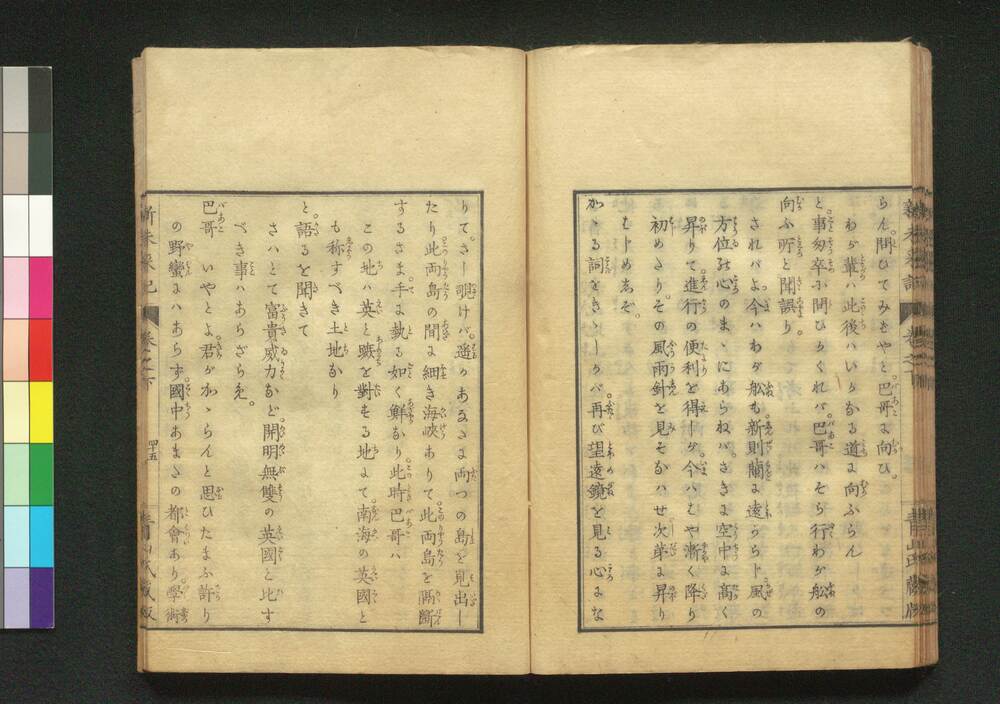 らん。問ひてみぞやと。巴哥に向ひ。
わが輩ハ此後ハいかなる道に向ふらん
と。事匆卒に問ひかくれバ。巴哥ハそら行わが舩の
向ふ所と聞誤り。
されバよ今ハわが舩も新則蘭に遠からじ風の
方位も心のまゝにあらねバ。さきに空中に高く
昇りて進行の便利を得しが。今ハはや漸く降り
初めたり。その風雨針を見そなハせ次第に昇り
もしめるぞ。
かゝる詞をきゝしかバ。再び望遠鏡を見る心にな
りてさし覗けバ。遥かあなたに両つの島を見出し
たり此両島の間に細き海峡ありて。此両島を隔断
するさま手に執る如く鮮なり。此時巴哥ハ
この地ハ英と蹠を對する地にて。南海の英國と
も称すべき土地なり
と。語るを聞きて
さハとて富貴威力など。開明無雙の英國と比す
べき事ハあらざらむ。
巴哥 いやとよ。君がかゝらんと思ひたまふ許り
の野蠻にハあらす。國中あまたの都會あり。學術
新未来記 巻之下 四十五 青山氏蔵版